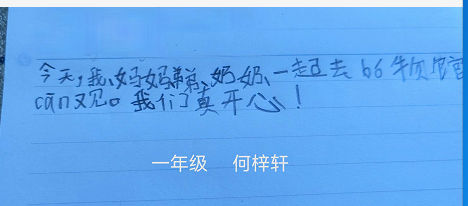 今天,我、妈妈、弟弟、奶奶、一起去bó物馆
cān观。我们真开心!
一年级 何梓轩